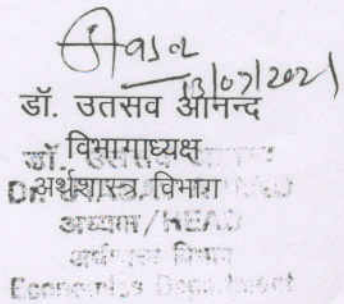 13/07/2021
डॉ. उतसव आनन्द
विभागाध्यक्ष
अर्थशास्त्र विभाग
अध्यक्ष/HEAD
अर्थशास्त्र विभाग
Economics Department